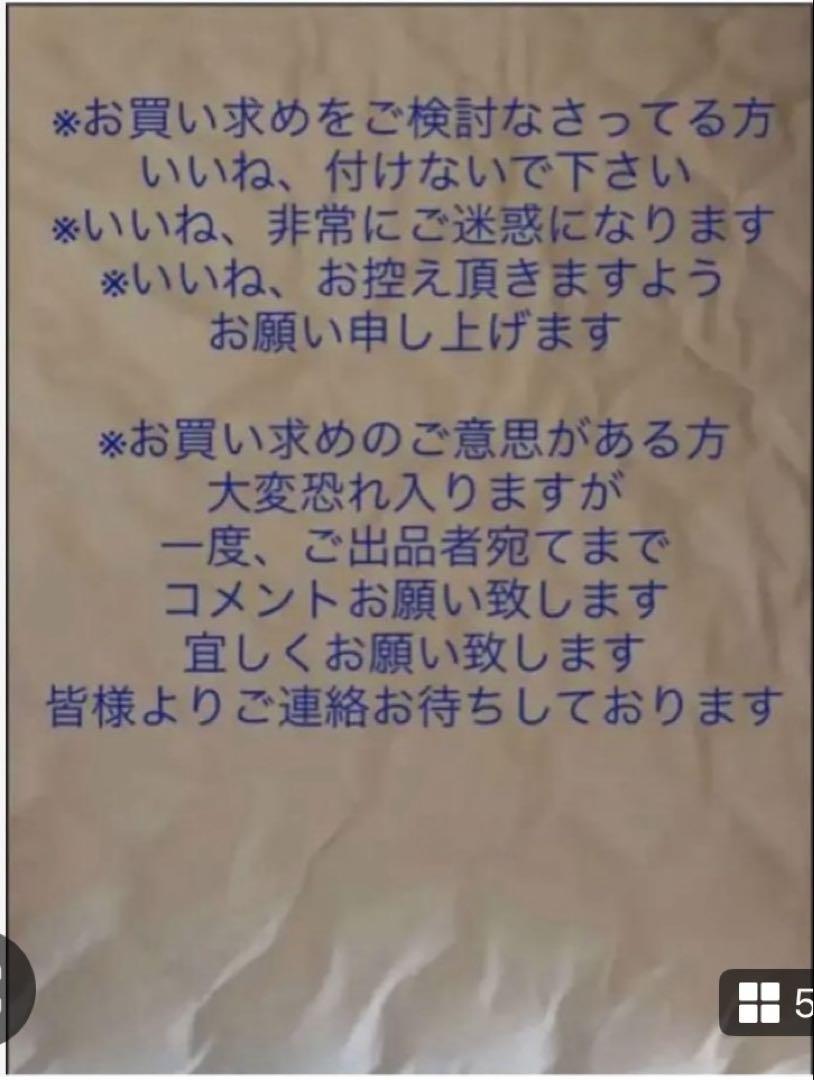 ※お買い求めをご検討なさってる方
いいね、付けないで下さい
※いいね、非常にご迷惑になります
※いいね、お控え頂きますよう
お願い申し上げます
※お買い求めのご意思がある方
大変恐れ入りますが
一度、ご出品者宛てまで
コメントお願い致します
宜しくお願い致します
皆様よりご連絡お待ちしております
5